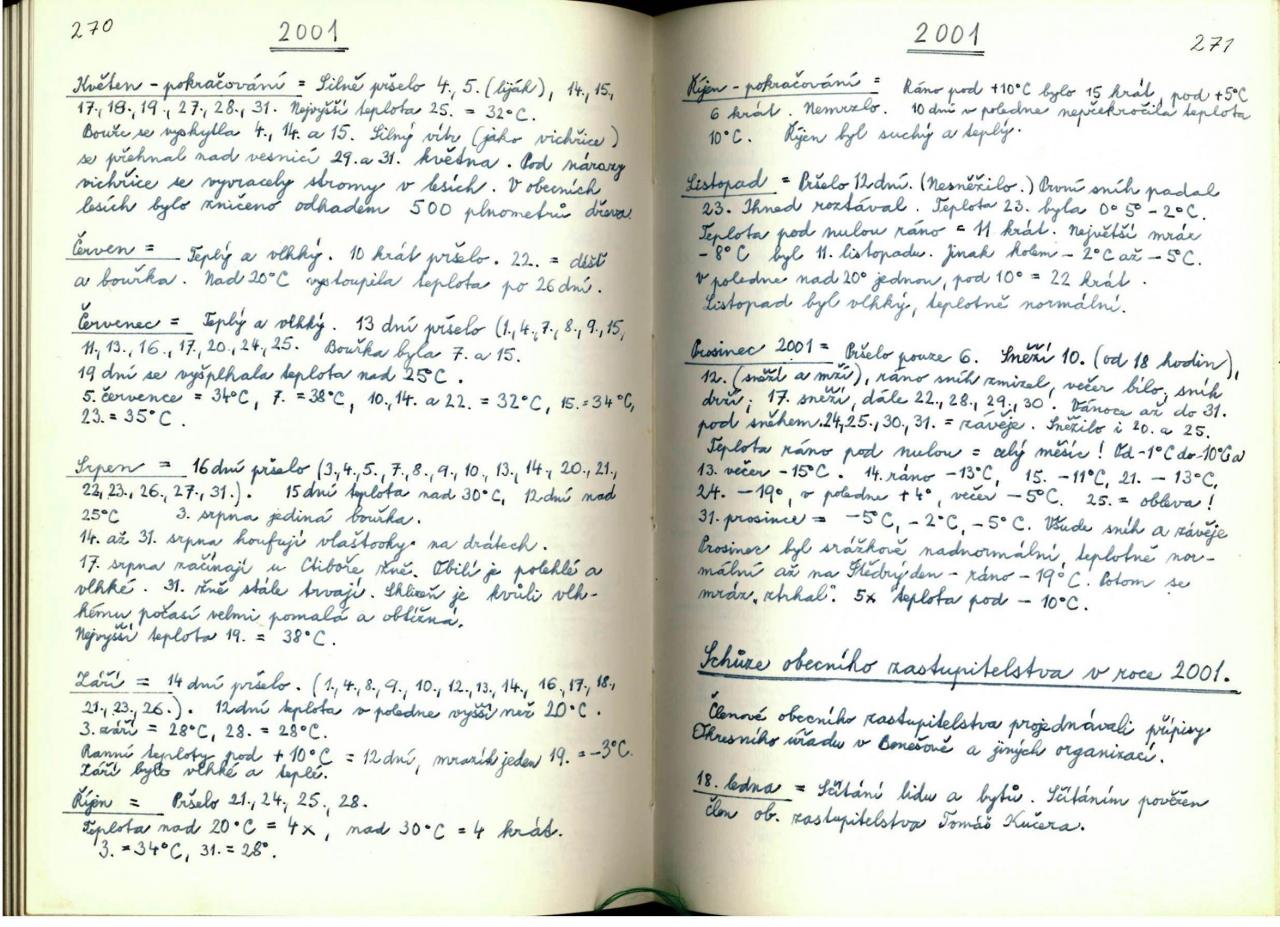 270
2001
Květen - pokračování = Silně pršelo 4., 5. (liják), 14., 15.,
17., 18., 19., 27., 28., 31. Nejvyšší teplota 25. = 32°C.
Bouře se vyskytla 4., 14. a 15. Silný vítr (jako vichřice)
se přehnal nad vesnicí 29. a 31. května. Pod nárazy
vichřice se vyvracely stromy v lesích. V obecních
lesích bylo zničeno odhadem 500 plnometrů dřeva.
Červen = Teplý a vlhký. 10 krát pršelo. 22. = déšť
a bouřka. Nad 20°C vystoupila teplota po 26 dní.
Červenec = Teplý a vlhký. 13 dní pršelo (1., 4., 7., 8., 9., 15,
11., 13., 16., 17., 20., 24., 25. Bouřka byla 7. a 15.
19 dní se vyšplhala teplota nad 25°C.
5. července = 34°C, 7. = 38°C, 10., 14. a 22. = 32°C, 15. = 34°C,
23. = 35°C.
Srpen = 16 dní pršelo (3., 4., 5., 7., 8., 9., 10., 13., 14., 20., 21.,
22., 23., 26., 27., 31.). 15 dní teplota nad 30°C, 12 dní nad
25°C 3. srpna jediná bouřka.
14. až 31. srpna houfují vlaštovky na drátech.
17. srpna začínají u Ctiboře žně. Obilí je polehlé a
vlhké. 31. žně stále trvají. Sklizeň je kvůli vlh-
kému počasí velmi pomalá a obtížná.
Nejvyšší teplota 19. = 38°C.
Září = 14 dní pršelo. (1., 4., 8., 9., 10., 12., 13., 14., 16., 17., 18.,
21., 23., 26.). 12 dní teplota v poledne vyšší než 20°C.
3. září = 28°C, 28. = 28°C.
Ranní teploty pod +10°C = 12 dní, mrazík jeden 19. = -3°C.
Září bylo vlhké a teplé.
Říjen = Pršelo 21., 24., 25., 28.
Teplota nad 20°C = 4x, nad 30°C = 4 krát.
3. = 34°C, 31. = 28°.
2001
271
Říjen - pokračování = Ráno pod +10°C bylo 15 krát, pod +5°C
6 krát. Nemrzlo. 10 dní v poledne nepřekročila teplota
10°C. Říjen byl suchý a teplý.
Listopad = Pršelo 12 dní. (Nesněžilo.) První sníh padal
23. Ihned roztával. Teplota 23. byla 0° 5° - 2°C.
Teplota pod nulou ráno = 11 krát. Největší mráz
- 8°C byl 11. listopadu. Jinak kolem - 2°C až - 5°C.
v poledne nad 20° jednou, pod 10° = 22 krát.
Listopad byl vlhký, teplotně normální.
Prosinec 2001 = Pršelo pouze 6. Sněží 10. (od 18 hodin),
12. (sněží a mží), ráno sníh zmizel, večer bílo, sníh
drží; 17. sněží, dále 22., 28., 29., 30. Vánoce až do 31.
pod sněhem. 24., 25., 30., 31. = závěje. Sněžilo i 20. a 25.
Teplota ráno pod nulou = celý měsíc! Od -1°C do -10°C a
13. večer -15°C. 14. ráno -13°C, 15. -11°C, 21. - 13°C,
24. - 19°, v poledne + 4°, večer - 5°C. 25. = obleva!
31. prosince = -5°C, -2°C, -5°C. Všude sníh a závěje
Prosinec byl srážkově nadnormální, teplotně nor-
mální až na Štědrý den - ráno - 19°C. Potom se
mráz "ztrhal". 5x teplota pod - 10°C.
Schůze obecního zastupitelstva v roce 2001.
Členové obecního zastupitelstva projednávali přípisy
Okresního úřadu v Benešově a jiných organizací.
18. ledna = Sčítání lidu a bytů. Sčítáním pověřen
člen ob. zastupitelstva Tomáš Kučera.